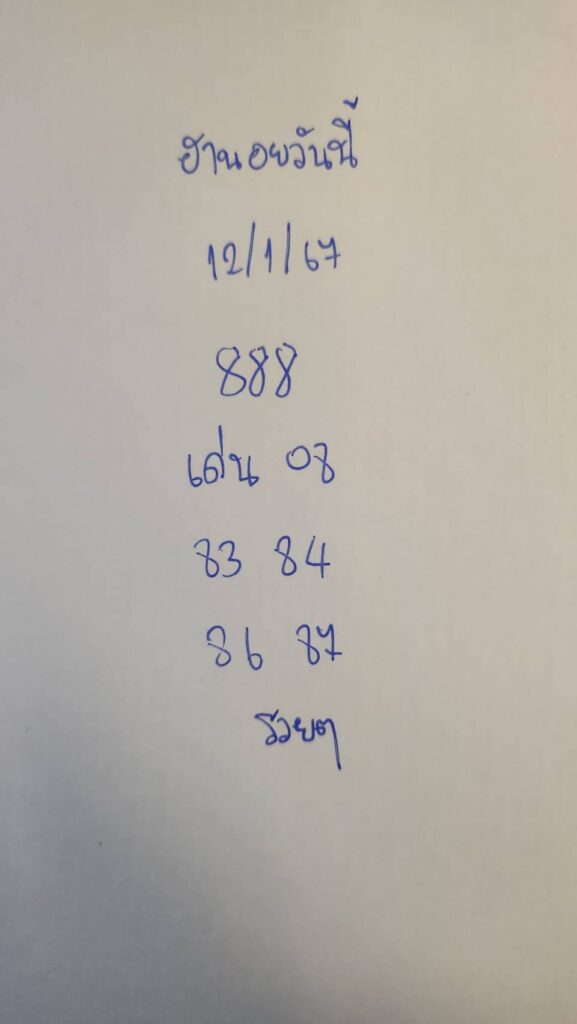 ฮานอยวันนี้
12/1/67
888
เด่น 08
83 84
86 87
รวยๆ